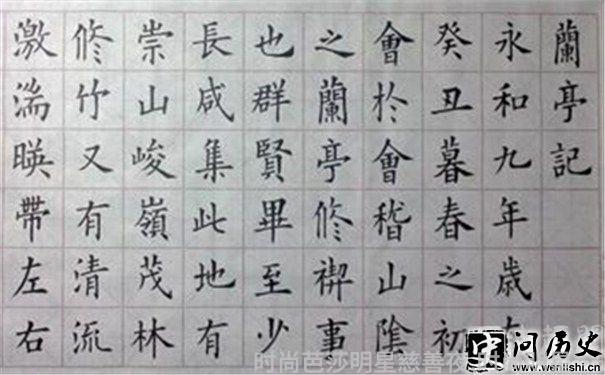 蘭亭記
永和九年歲
癸丑暮春之初
會於會稽山陰
之蘭亭修禊事
也群賢畢至少
長咸集此地有
崇山峻嶺茂林
修竹又有清流
激湍暎帶左右
时尚芭莎明星慈善夜
问历史
www.wenlishi.cn